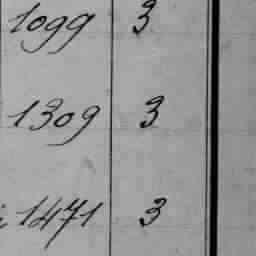 1099 3
1309 3
1471 3